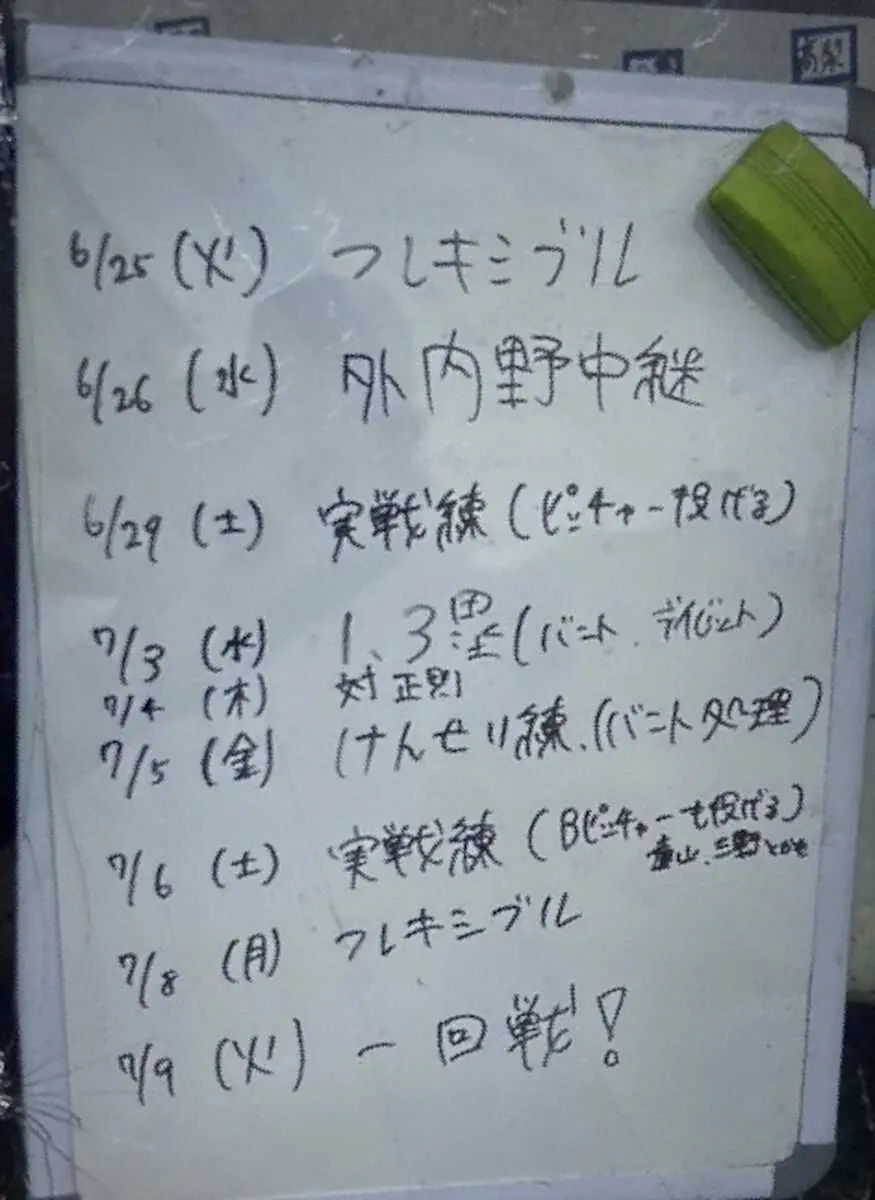 6/25 (火) フレキシブル
6/26 (水) 外内野中継
6/29 (土) 実戦練(ピッチャー投げる)
7/3 (水) 1、3塁(バント、デイバット)
7/4 (木) 対 正則
7/5 (金) けんせい練、(バント処理)
7/6 (土) 実戦練(Bピッチャーも投げる)
山、三野とかも
7/8 (月) フレキシブル
7/9 (火) 一回戦!